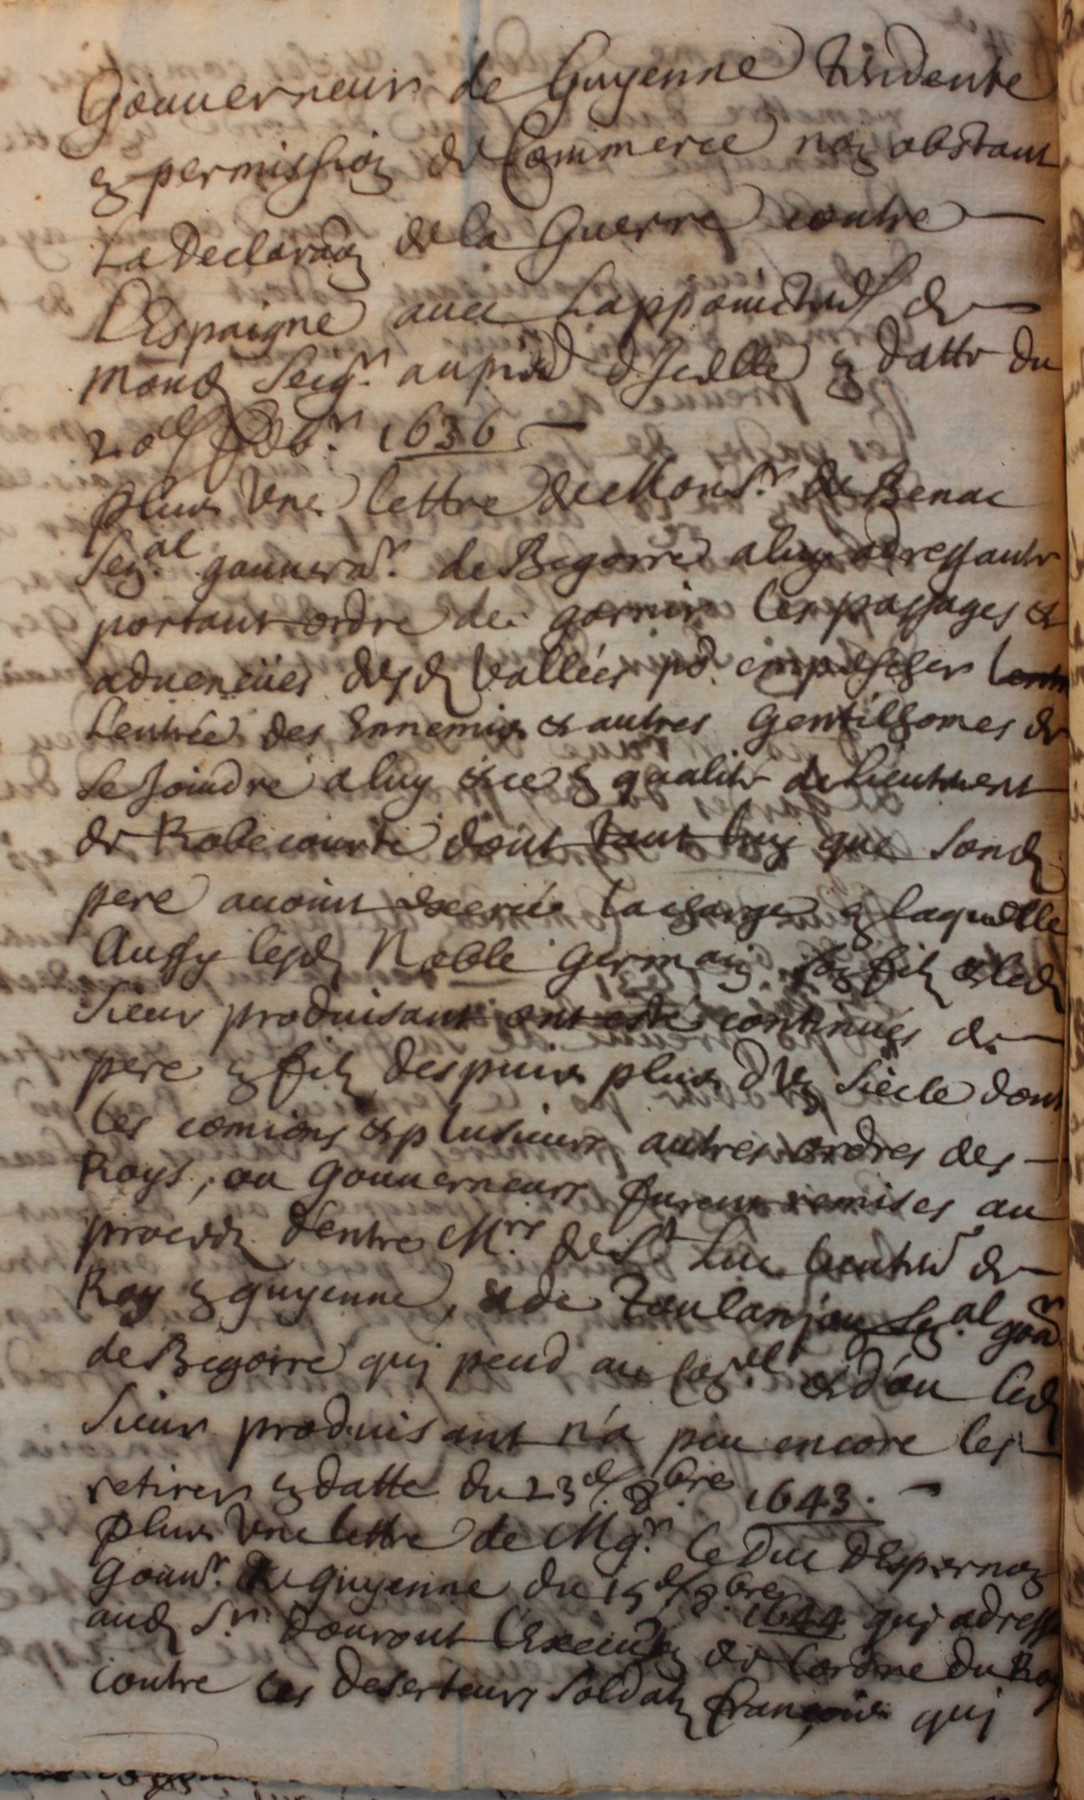 Gouverneur de Guyenne tendente
en permission de Commerce non obstant
La Declaraon de la Guerre contre
L'Espaigne avec Lappointemt de
mond Seigr au pied d'Icelle en datte du
20e 1636
plus Une lettre de Monsr de Benac
Senal gouvernr de Bigorre a luy adressante
portant ordre de garnir les passages &
advenues desd Vallées pr empescher
L'entrée des Ennemis & autres Gentilhomes de
se Joindre a luy & ce en qualité de Lieutnent
de Robe courte dont tant luy que sond
pere avoint exercé la charge en laquelle
Aussy lesd Noble Germain son filz & led
Sieur produisant ont esté continués de
pere en filz despuis plus d'Un Siecle dont
les comions & plusieurs autres ordres des
Roys, ou Gouverneurs furent remises au
proces d'entre Mrs de St Luc Lieutnt de
Roy en guyenne, & de Toulonjon Senal gour
de Bigorre qui pend au & d'ou led
Sieur produisant n'a peu encore les
retirer en datte du 23e 8bre 1643.
plus Une lettre de Mgr le Duc D'Espernon
Gouvr de guyenne du 15e 1644 qui adresse
aud Sr Dourout L'Execuon de l'ordre du Roy
contre les deserteurs Soldatz françois qui